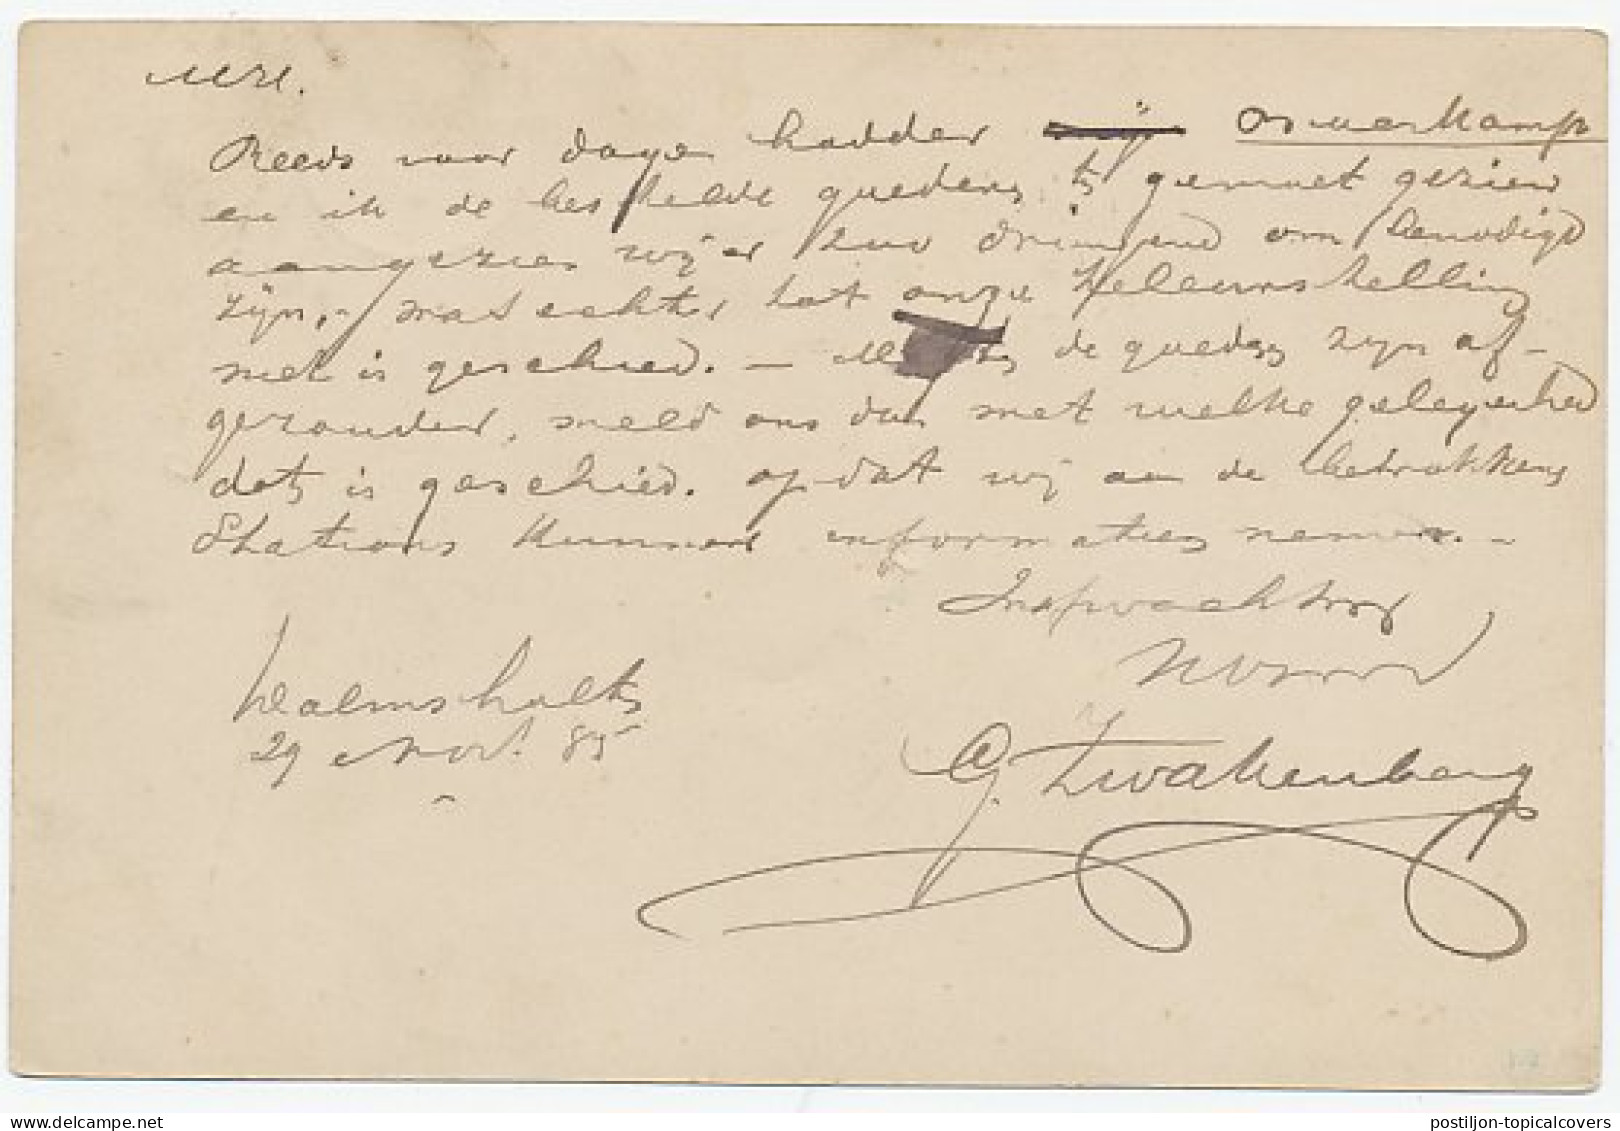 MH.
Reeds voor dagen hadden Osnerkamp
en ik de bestelde goederen te gemoet gezien
aangezien wij er zoo dringend om benodigd
zijn, - wat echter tot onze teleurstelling
niet is geschied. - de goederen zijn af-
gezonden, meld ons dan met welke gelegenheid
dats is geschied. opdat wij aan de betrokkene
Stations kunnen informaties nemen. -
Inafwachting
G. Zwakenberg
29 Nov. 85
postiljon-topicalcovers